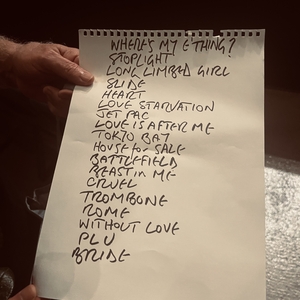 WHERE'S MY E'THING?
STOPLIGHT
LONG LIMBED GIRL
SLIDE
HEART
LOVE STARVATION
JET PAC
LOVE IS AFTER ME
TOKYO BAY
HOUSE for SALE
BATTLEFIELD
BEAST in ME
CRUEL
TROMBONE
ROME
WITHOUT LOVE
PLU
BRIDE